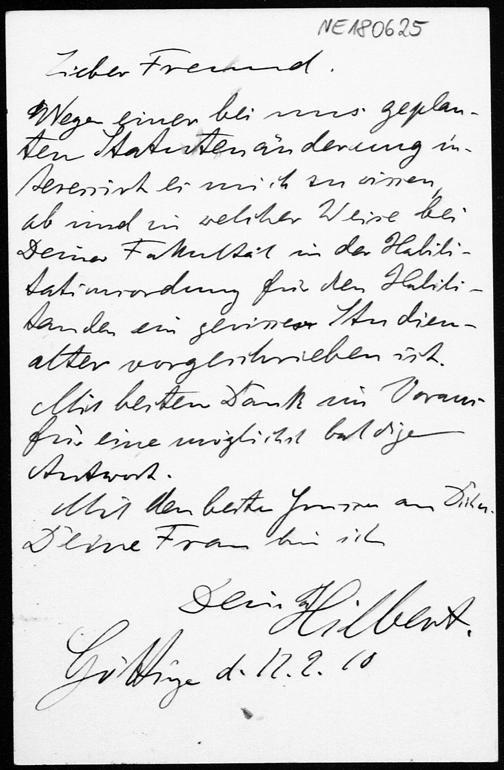 NE180625
Lieber Freund.
Wegen einer bei uns geplan-
ten Statutenänderung in-
teressirt es mich zu wissen,
ob und in welcher Weise bei
Deiner Fakultät in der Habili-
tationsordnung für den Habili-
tanden ein gewisses Studien-
alter vorgeschrieben ist.
Mit besten Dank im Voraus
für eine möglichst baldige
Antwort.
Mit den besten Grüssen an Dich u.
Deine Frau bin ich
Dein
Hilbert.
Göttingen d. 2. 10